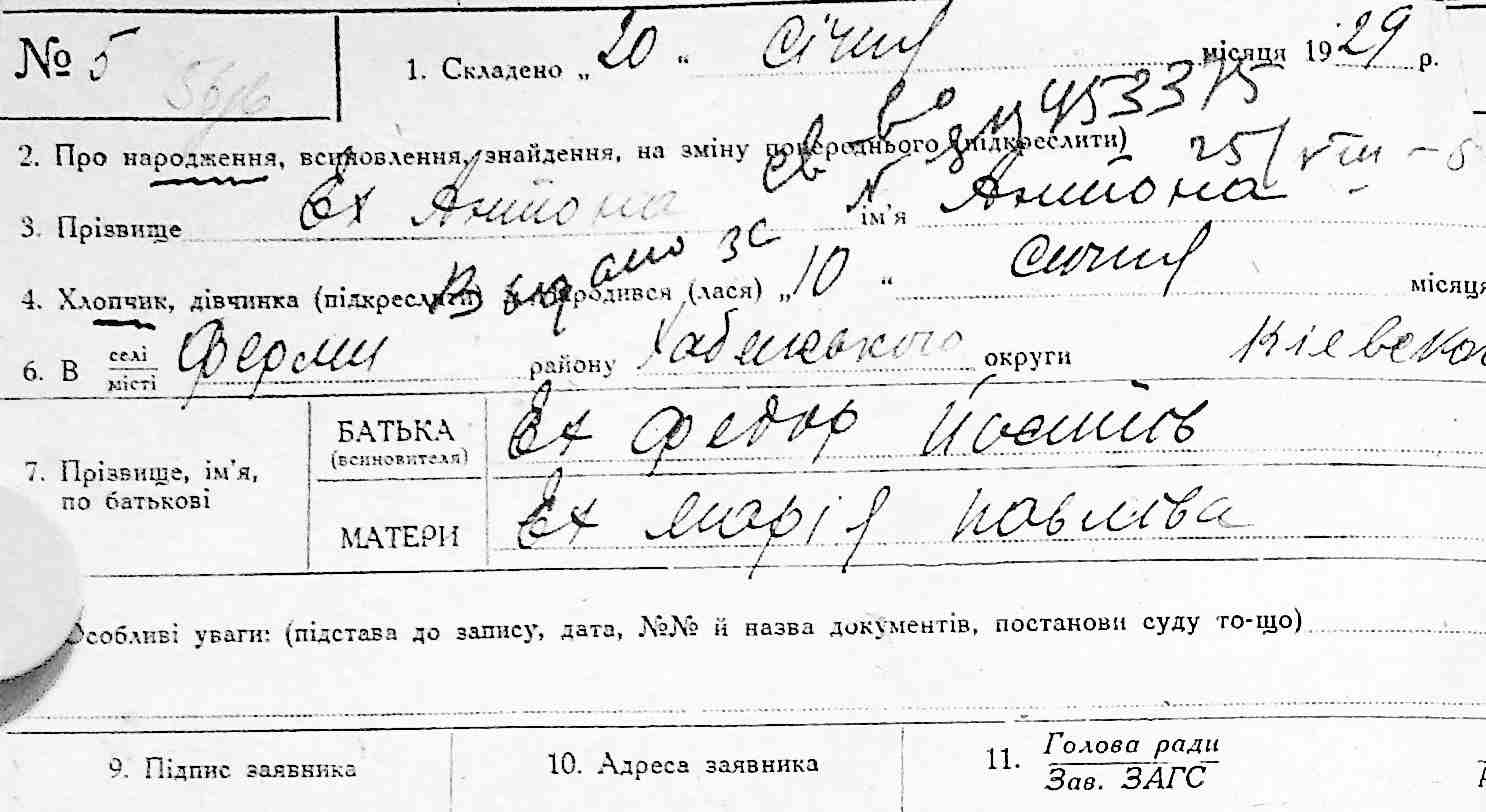 № 5
1. Складено „ 20 “ січня місяця 1929 р.
2. Про народження, всиновлення, знайдення, на зміну попереднього (підкреслити)
св во
N 453375
25/VIII - 5
3. Прізвище Ех Антона ім'я Антона
Выдано
4. Хлопчик, дівчинка (підкреслити) народився (лася) „ 10 “ січня місяця
6. В селі/місті Ферми району Хабенського округи Кіевской
7. Прізвище, ім'я, по батькові
БАТЬКА (всиновителя) Ех Федор
МАТЕРИ Ех Марія Павліва
Особливі уваги: (підстава до запису, дата, №№ й назва документів, постанови суду то-що)
9. Підпис заявника
10. Адреса заявника
11. Голова ради
Зав. ЗАГС